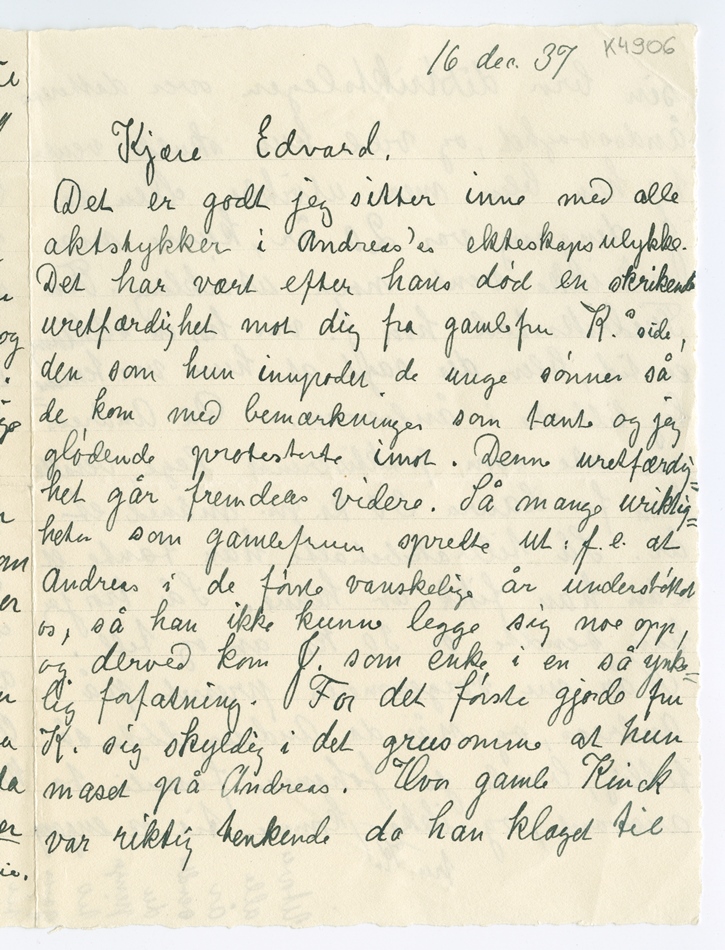 16 dec. 37 K4906
Kjære Edvard.
Det er godt jeg sitter inne med alle
aktstykker i Andreas'es ekteskapsulykke.
Det har vært efter hans død en skrikende
uretfærdighet mot dig fra gamlefru K.s side,
den som hun innpodet de unge sønner så
de kom med bemærkninger som tante og jeg
glødende protesterte imot. Denne uretfærdig=
het går fremdeles videre. Så mange uriktig=
heter som gamlefruen spredte ut: f.e. at
Andreas i de første vanskelige år understøttet
os, så han ikke kunne legge sig noe opp,
og derved kom J. som enke i en så ynke=
lig forfatning. For det første gjorde fru
K. sig skyldig i det grusomme at hun
maset på Andreas. Hvor gamle Kinck
var riktig tenkende da han klaget til